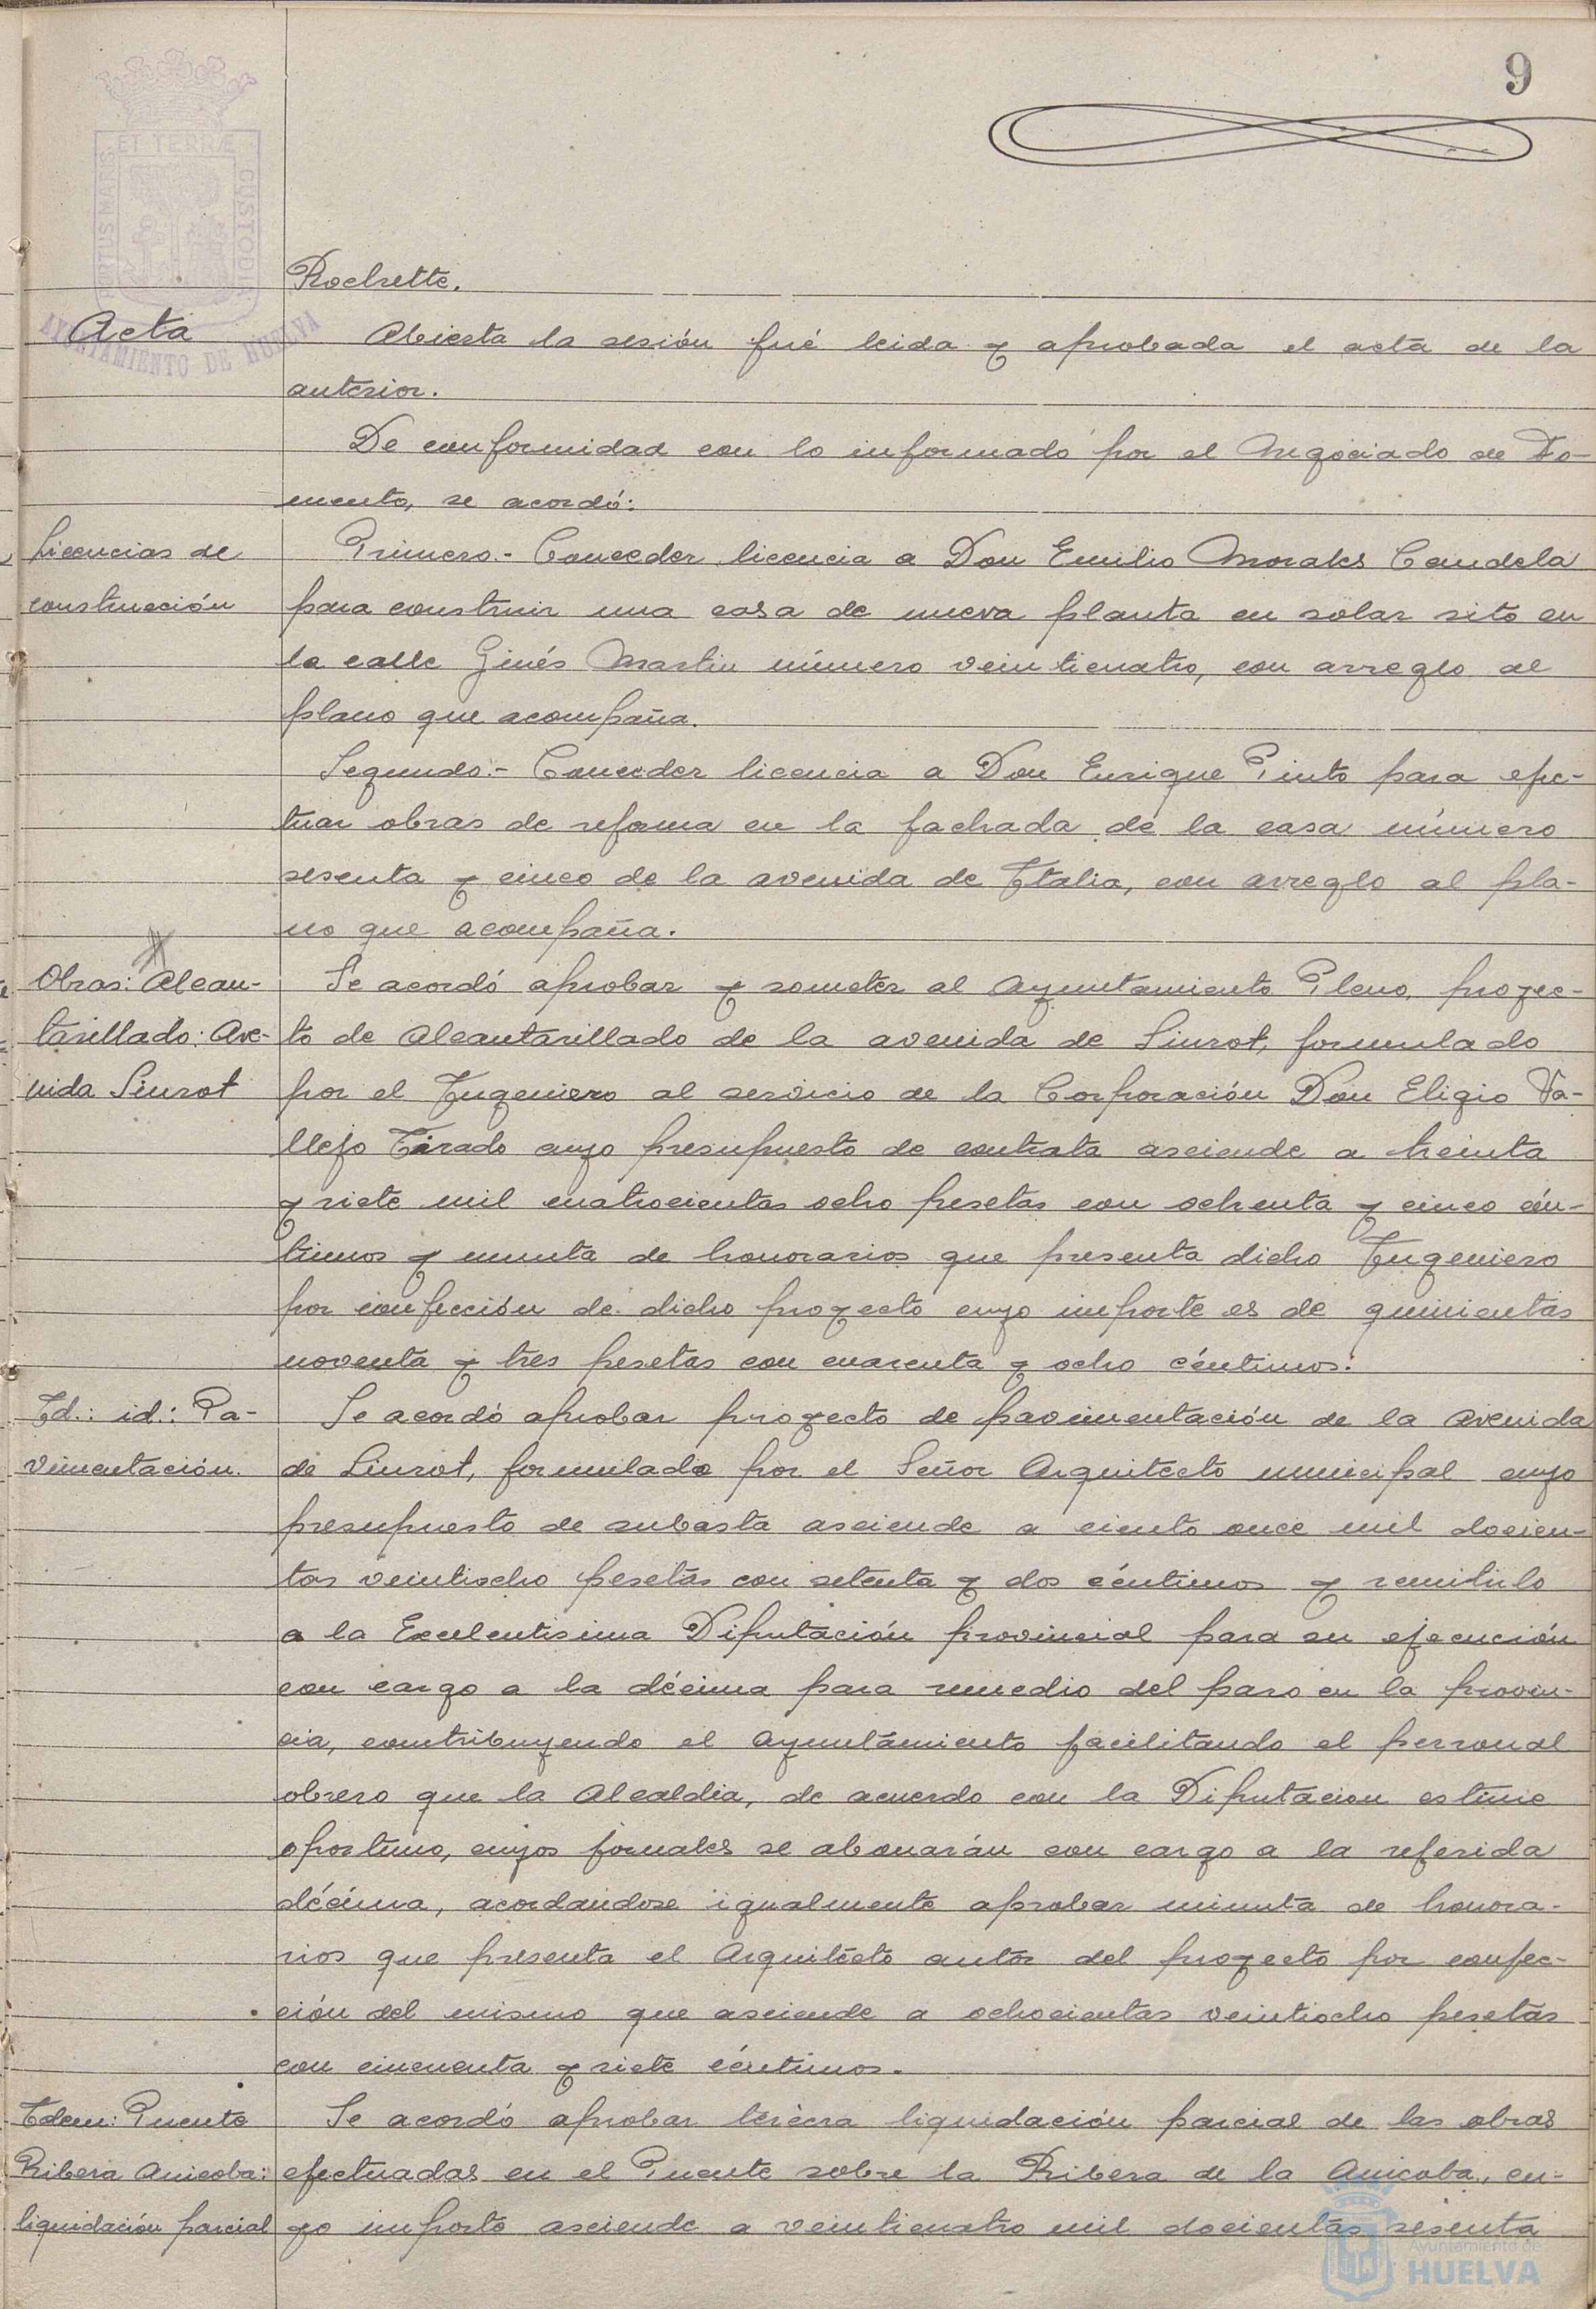 9
PORTUS MARIS ET TERRÆ CUSTODIA
AYUNTAMIENTO DE HUELVA
Rochette.
Acta
Abierta la sesión fué leida y aprobada el acta de la
anterior.
De conformidad con lo informado por el Negociado de Fo-
mento, se acordó:
Licencias de
construcción
Primero.- Conceder licencia a Don Emilio Morales Candela
para construir una casa de nueva planta en solar sito en
la calle Ginés Martin número veinticuatro, con arreglo al
plano que acompaña.
Segundo.- Conceder licencia a Don Enrique Pinto para efec-
tuar obras de reforma en la fachada de la casa número
sesenta y cinco de la avenida de Italia, con arreglo al pla-
no que acompaña.
Obras: Alcan-
tarillado: Ave-
nida Siurot
Se acordó aprobar y someter al Ayuntamiento Pleno, proyec-
to de Alcantarillado de la avenida de Siurot, formulado
por el Ingeniero al servicio de la Corporación Don Eligio Va-
llejo Tirado cuyo presupuesto de contrata asciende a treinta
y siete mil cuatrocientas ocho pesetas con ochenta y cinco cén-
timos y minuta de honorarios que presenta dicho Ingeniero
por confección de dicho proyecto cuyo importe es de quinientas
noventa y tres pesetas con cuarenta y ocho céntimos.
Id.: id.: Pa-
vimentación.
Se acordó aprobar proyecto de pavimentación de la Avenida
de Siurot, formulado por el Señor Arquitecto municipal cuyo
presupuesto de subasta asciende a ciento once mil docien-
tas veintiocho pesetas con setenta y dos céntimos y remitirlo
a la Excelentisima Diputación provincial para su ejecución
con cargo a la décima para remedio del paro en la provin-
cia, contribuyendo el Ayuntamiento facilitando el personal
obrero que la Alcaldia, de acuerdo con la Diputacion estime
oportuno, cuyos jornales se abonarán con cargo a la referida
décima, acordandose igualmente aprobar minuta de honora-
rios que presenta el Arquitecto autor del proyecto por confec-
ción del mismo que asciende a ochocientas veintiocho pesetas
con cincuenta y siete céntimos.
Idem: Puente
Ribera Anicoba:
liquidación parcial
Se acordó aprobar tercera liquidación parcial de las obras
efectuadas en el Puente sobre la Ribera de la Anicoba, cu-
yo importe asciende a veinticuatro mil docientas sesenta
Ayuntamiento de
HUELVA